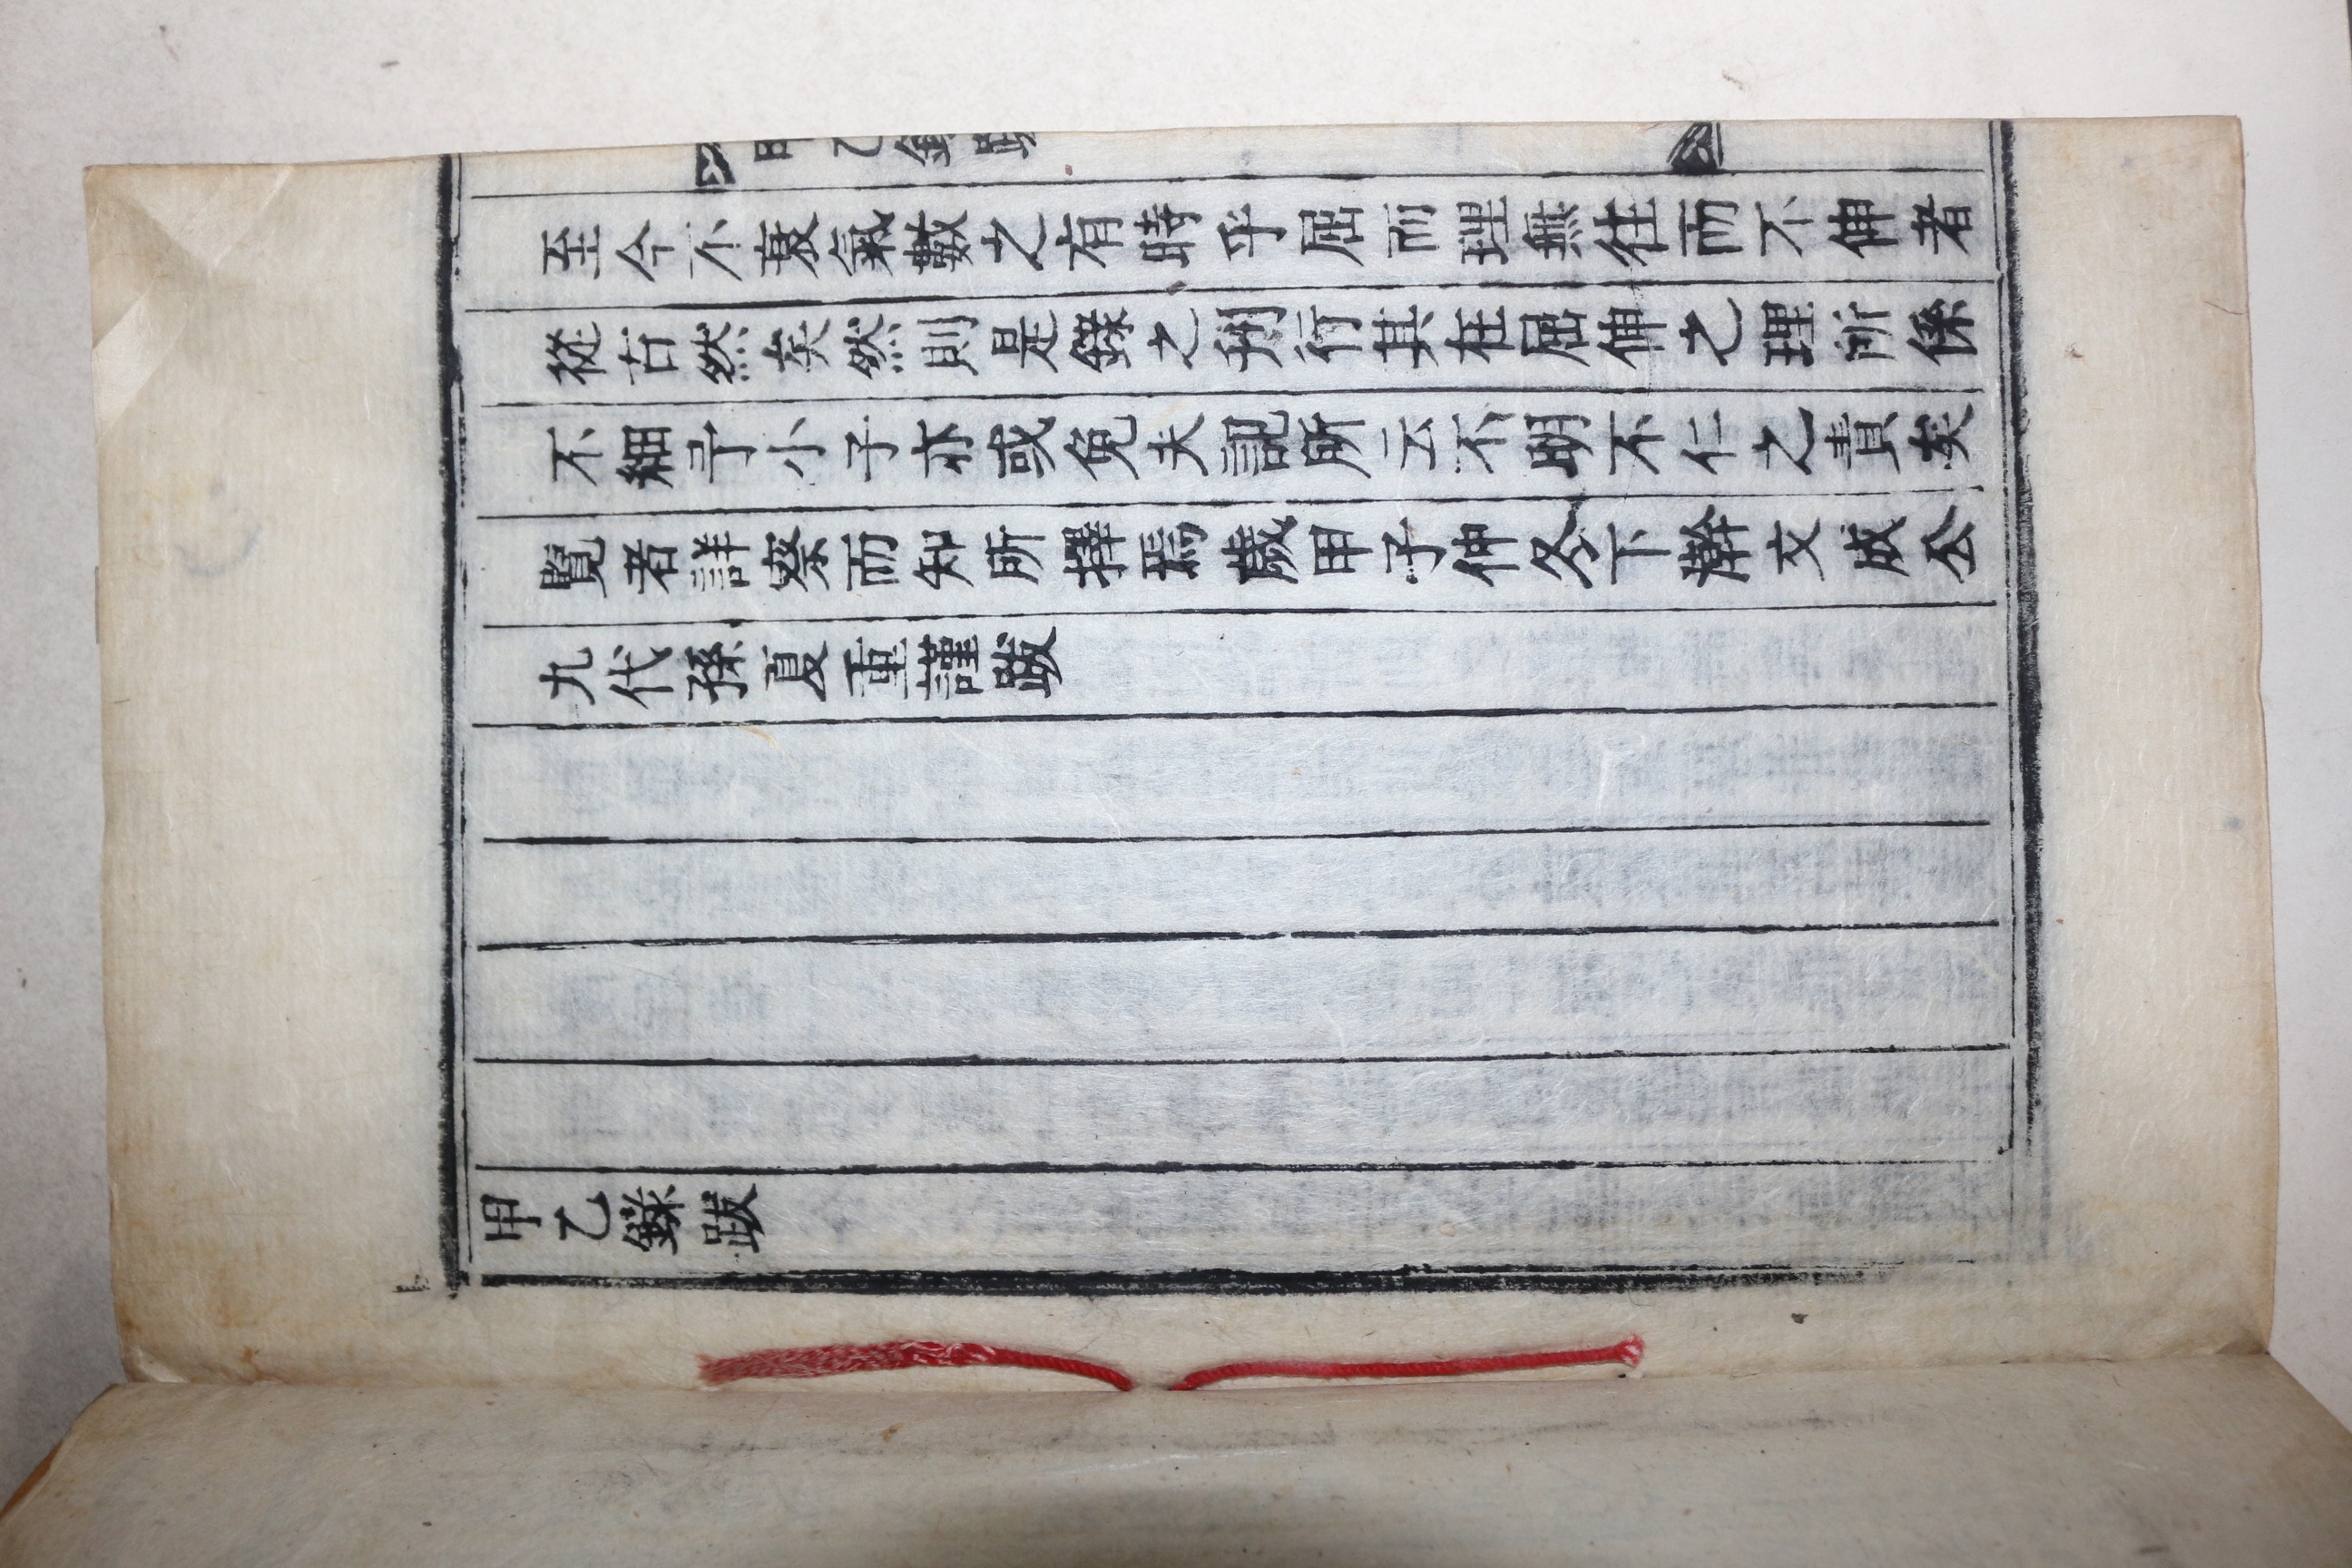 甲乙錄跋
至今不衰氣數之有時乎屈而理無往而不伸者
從古然矣然則是錄之刋行其在屈伸之理所係
不細乎小子亦或免夫記所云不明不仁之責矣
覽者詳察而知所擇焉歲甲子仲冬下澣文成公
九代孫夏重謹跋
甲乙錄跋